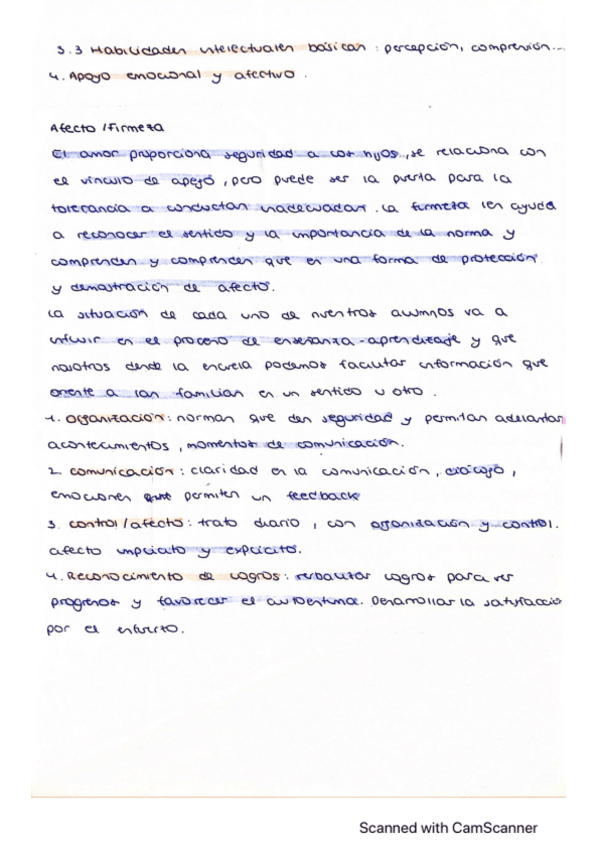 3.3 Habilidades intelectuales básicas : percepción, comprensión...
4. Apoyo emocional y afectivo.
Afecto / Firmeza
El amor proporciona seguridad a los hijos, se relaciona con
el vínculo de apego, pero puede ser la puerta para la
tolerancia a conductas inadecuadas. La firmeza les ayuda
a reconocer el sentido y la importancia de la norma y
comprenden y comprenden que es una forma de protección
y demostración de afecto.
La situación de cada uno de nuestros alumnos va a
influir en el proceso de enseñanza-aprendizaje y que
nosotros desde la escuela podemos facilitar información que
oriente a las familias en un sentido u otro.
1. Organización: normas que den seguridad y permitan adelantar
acontecimientos, momentos de comunicación.
2. comunicación: claridad en la comunicación, diálogo,
emociones que permiten un feedback
3. control/afecto: trato diario, con organización y control.
afecto implícito y explícito.
4. Reconocimiento de logros: logros para ver
progresos y favorecer el autoestima. Desarrollar la satisfacció
por el esfuerzo.
Scanned with CamScanner